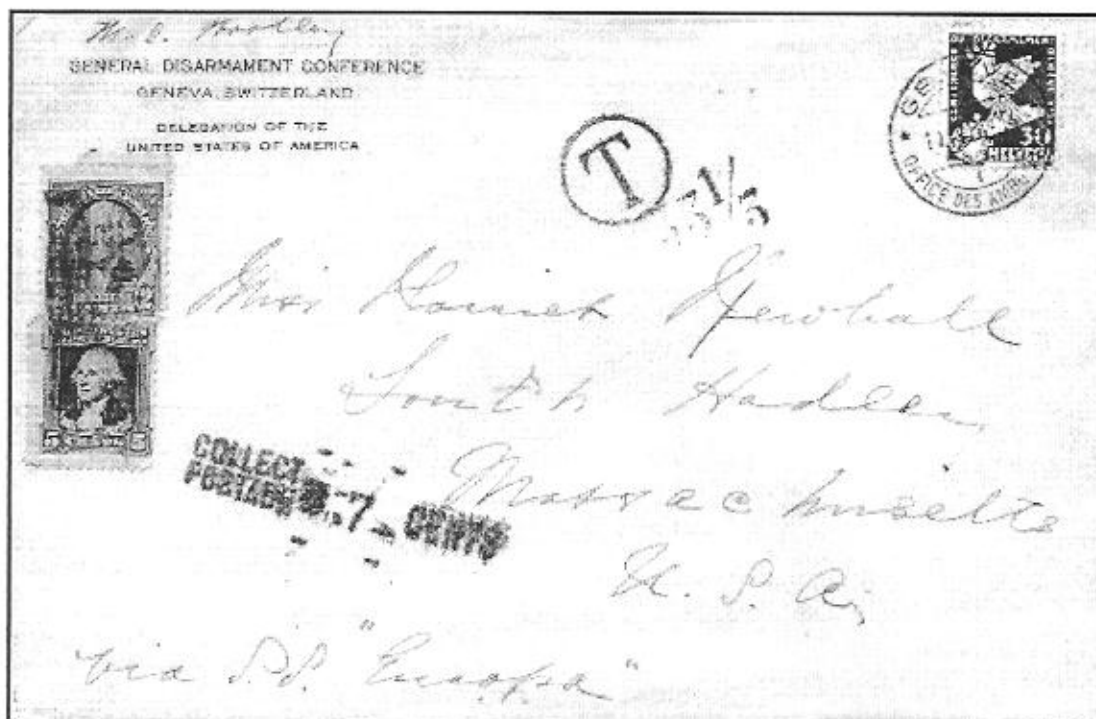 GENERAL DISARMAMENT CONFERENCE
GENEVA, SWITZERLAND
DELEGATION OF THE
UNITED STATES OF AMERICA
30
HELVETIA
OFFICE DES AMB
T
Miss Harriet Newhall
South Hadley
Massachusetts
U. S. A.
2
5 CENTS 5
COLLECT
POSTAGE 7 CENTS
via S.S. "Europa"